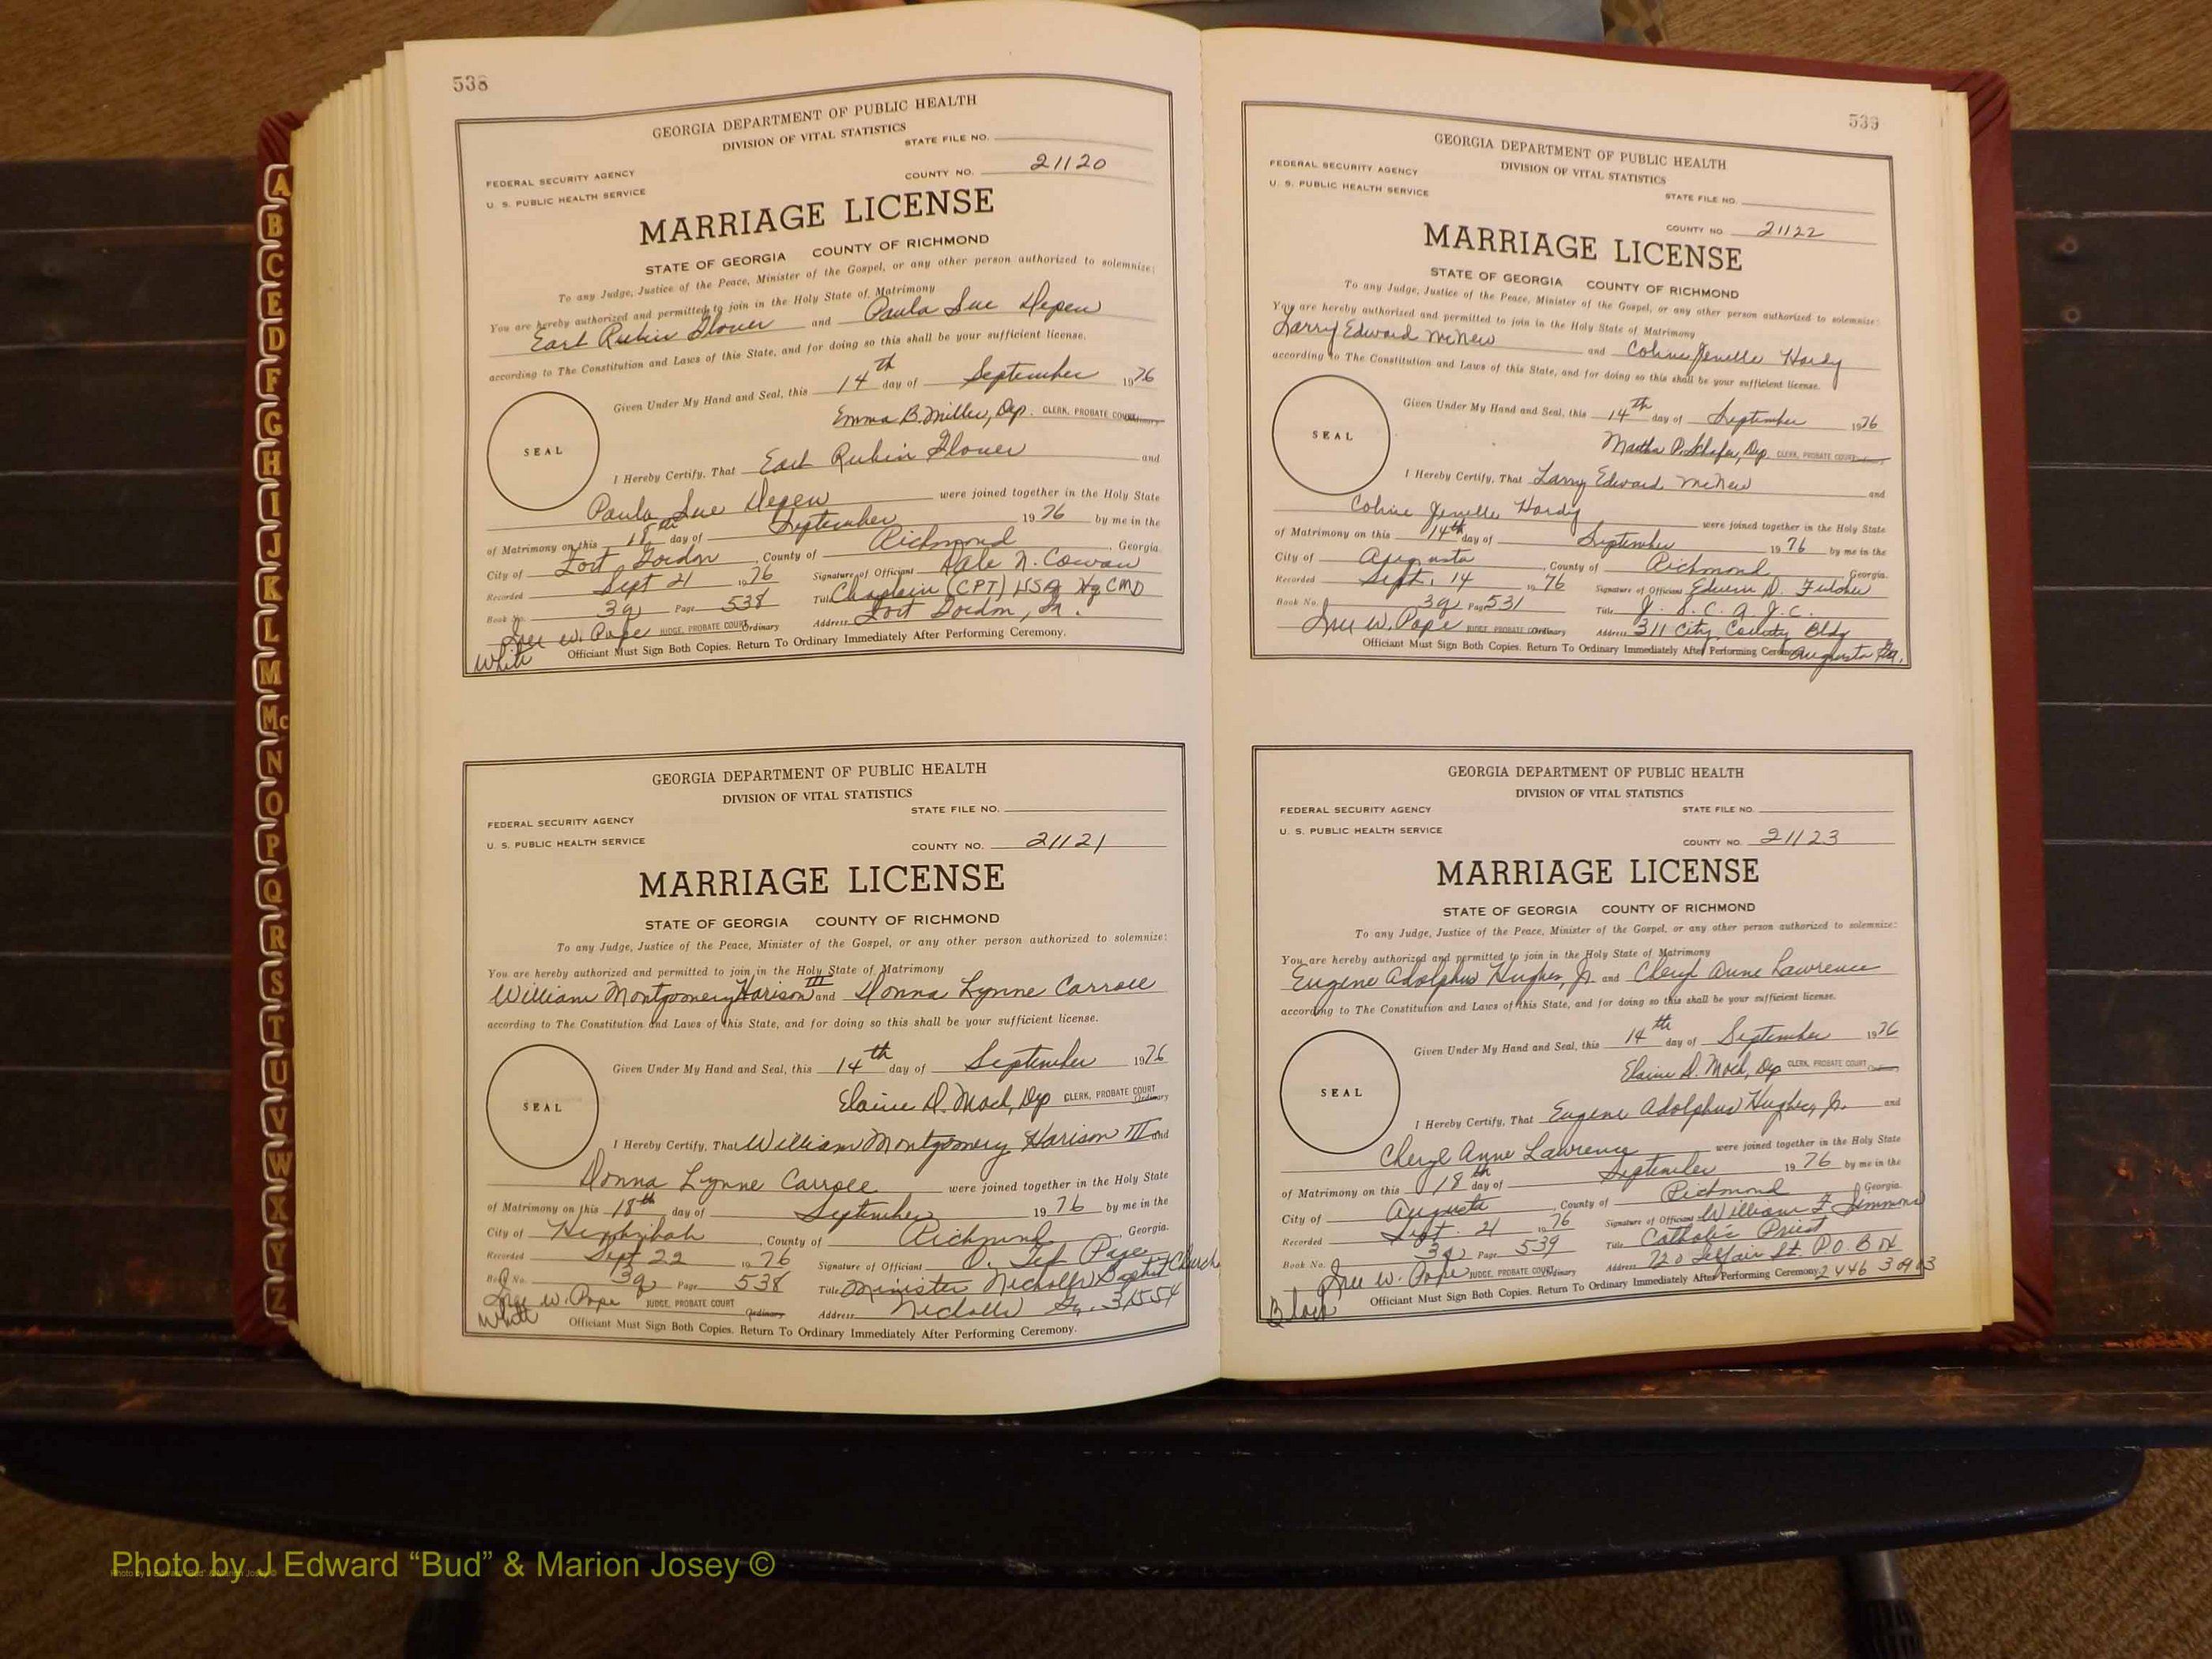 538
GEORGIA DEPARTMENT OF PUBLIC HEALTH
DIVISION OF VITAL STATISTICS
STATE FILE NO.
FEDERAL SECURITY AGENCY
U. S. PUBLIC HEALTH SERVICE
COUNTY NO. 21120
MARRIAGE LICENSE
STATE OF GEORGIA COUNTY OF RICHMOND
To any Judge, Justice of the Peace, Minister of the Gospel, or any other person authorized to solemnize:
You are hereby authorized and permitted to join in the Holy State of Matrimony
Earl Rubin Glover and Paula Sue Depew
according to The Constitution and Laws of this State, and for doing so this shall be your sufficient license.
Given Under My Hand and Seal, this 14th day of September 1976
Emma B. Miller, Dep. CLERK, PROBATE COURT Ordinary
SEAL
I Hereby Certify, That Earl Rubin Glover and
Paula Sue Depew were joined together in the Holy State
of Matrimony on this 18th day of September 1976 by me in the
City of Fort Gordon, County of Richmond, Georgia.
Recorded Sept 21 1976 Signature of Officiant Dale N. Cowan
Book No. 3q Page 538 Title Chaplain (CPT) USA Hq CMD
W. Pope JUDGE, PROBATE COURT Ordinary Address Fort Gordon, Ga.
White Officiant Must Sign Both Copies. Return To Ordinary Immediately After Performing Ceremony.
GEORGIA DEPARTMENT OF PUBLIC HEALTH
DIVISION OF VITAL STATISTICS
STATE FILE NO.
FEDERAL SECURITY AGENCY
U. S. PUBLIC HEALTH SERVICE
COUNTY NO. 21121
MARRIAGE LICENSE
STATE OF GEORGIA COUNTY OF RICHMOND
To any Judge, Justice of the Peace, Minister of the Gospel, or any other person authorized to solemnize:
You are hereby authorized and permitted to join in the Holy State of Matrimony
William Montgomery Harison III and Donna Lynne Carroll
according to The Constitution and Laws of this State, and for doing so this shall be your sufficient license.
Given Under My Hand and Seal, this 14th day of September 1976
Elaine D. Mock, Dep CLERK, PROBATE COURT Ordinary
SEAL
I Hereby Certify, That William Montgomery Harison III and
Donna Lynne Carroll were joined together in the Holy State
of Matrimony on this 18th day of September 1976 by me in the
City of Hephzibah, County of Richmond, Georgia.
Recorded Sept 22 1976 Signature of Officiant Page
Book No. 3q Page 538 Title Minister Nicholls Baptist Church
W. Pope JUDGE, PROBATE COURT Ordinary Address Nicholls Ga. 31554
White Officiant Must Sign Both Copies. Return To Ordinary Immediately After Performing Ceremony.
539
GEORGIA DEPARTMENT OF PUBLIC HEALTH
DIVISION OF VITAL STATISTICS
FEDERAL SECURITY AGENCY
U. S. PUBLIC HEALTH SERVICE
STATE FILE NO.
COUNTY NO. 21122
MARRIAGE LICENSE
STATE OF GEORGIA COUNTY OF RICHMOND
To any Judge, Justice of the Peace, Minister of the Gospel, or any other person authorized to solemnize:
You are hereby authorized and permitted to join in the Holy State of Matrimony
Larry Edward McNew and Coline Jenelle Hardy
according to The Constitution and Laws of this State, and for doing so this shall be your sufficient license.
Given Under My Hand and Seal, this 14th day of September 1976
Martha P. Shafer, Dep. CLERK, PROBATE COURT Ordinary
SEAL
I Hereby Certify, That Larry Edward McNew and
Coline Jenelle Hardy were joined together in the Holy State
of Matrimony on this 14th day of September 1976 by me in the
City of Augusta, County of Richmond, Georgia.
Recorded Sept. 14 1976 Signature of Officiant Edwin D. Fulcher
Book No. 3q Page 531 Title J. S. C. A. J. C.
W. Pope JUDGE, PROBATE COURT Ordinary Address 311 City County Bldg
Officiant Must Sign Both Copies. Return To Ordinary Immediately After Performing Ceremony. Augusta Ga.
GEORGIA DEPARTMENT OF PUBLIC HEALTH
DIVISION OF VITAL STATISTICS
FEDERAL SECURITY AGENCY
STATE FILE NO.
U. S. PUBLIC HEALTH SERVICE
COUNTY NO. 21123
MARRIAGE LICENSE
STATE OF GEORGIA COUNTY OF RICHMOND
To any Judge, Justice of the Peace, Minister of the Gospel, or any other person authorized to solemnize:
You are hereby authorized and permitted to join in the Holy State of Matrimony
Eugene Adolphus Hughes, Jr. and Cheryl Anne Lawrence
according to The Constitution and Laws of this State, and for doing so this shall be your sufficient license.
Given Under My Hand and Seal, this 14th day of September 1976
Elaine D. Mock, Dep CLERK, PROBATE COURT Ordinary
SEAL
I Hereby Certify, That Eugene Adolphus Hughes, Jr. and
Cheryl Anne Lawrence were joined together in the Holy State
of Matrimony on this 18th day of September 1976 by me in the
City of Augusta, County of Richmond, Georgia.
Recorded Sept. 21 1976 Signature of Officiant William F Simmons
Book No. 3q Page 539 Title Catholic Priest
W. Pope JUDGE, PROBATE COURT Ordinary Address 720 Telfair St. P.O. Box
2446 30903
Black Officiant Must Sign Both Copies. Return To Ordinary Immediately After Performing Ceremony.
A
B
C
E
D
F
G
H
I
J
K
L
M
Mc
N
O
P
Q
R
S
T
U
V
W
X
Y
Z
Photo by J Edward “Bud” & Marion Josey ©
Photo by J Edward “Bud” & Marion Josey ©